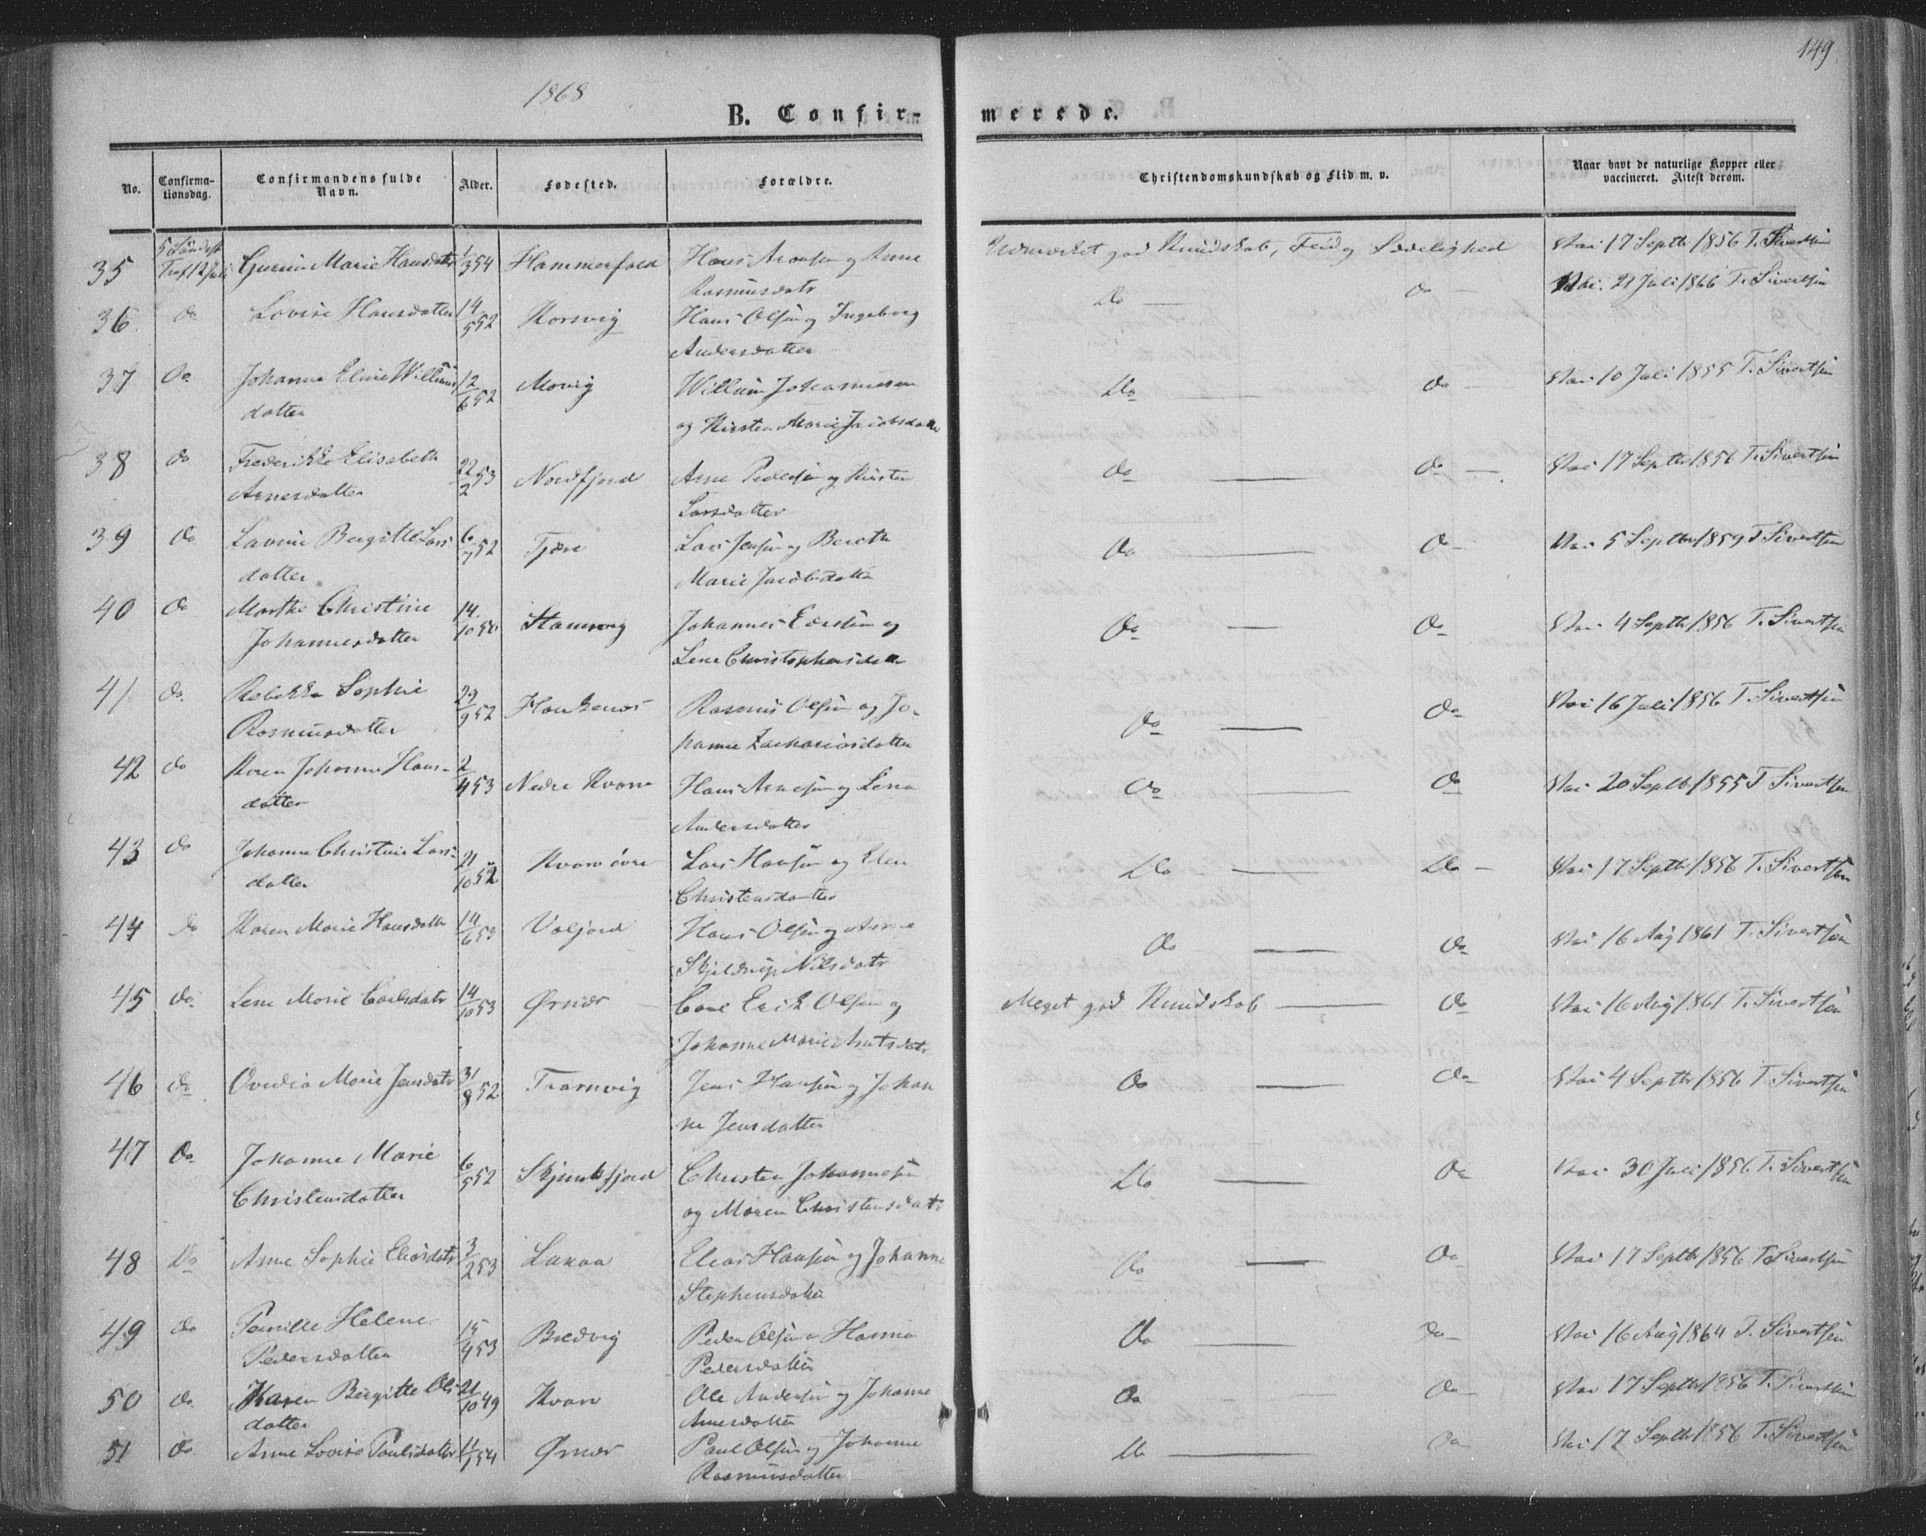 149
1868
B. Confirmerede.
No. Confirmationsdag. Confirmandens fulde Navn. Alder. Fødested. Forældre. Christendomskundskab og Flid m. v. Naar havt de naturlige Kopper eller vaccineret. Attest derom.
35 12 Juli Marie Hansdatr 54 Hammerfald Hans og Anne Rasmusdatr god Kundskab, Flid og Sædelighed Vac 17 Septbr 1856 T. Sivertsen
36 do Lovise Hansdatter 14/5 52 Korsvig Hans Olsen og Ingeborg Andersdatter Do — do — Vac. 21 Juli 1866 T. Sivertsen
37 Do Johanne Eline Williamsdatter 12/6 52 Movig William Johannesen og Kirsten Marie Jacobsdatter Do — do — Vac 10 Juli 1855 T. Sivertsen
38 do Frederikke Elisabeth Arnesdatter 22/2 53 Nordfjord Arne Pedersen og Kirsten Larsdatter Do — Do — Vac 17 Septbr 1856 T. Sivertsen
39 do Lavine Bergitte Larsdatter 6/7 52 Tjære Lars Jensen og Bereth Marie Jacobsdatter Do Do — Vac 5 Septbr 1859 T Sivertsen
40 Do Marthe Christine Johannesdatter 14/10 50 Stamsvig Johannes og Lene Christophersdatter Do — Do Vac 4 Septbr 1856 T. Sivertsen
41 do Rebekka Sophie Rasmusdatter 29/9 52 Haukenæs Rasmus Olsen og Johanne Zachariasdatter Do — Do Vac 16 Juli 1856 T. Sivertsen
42 do Karen Johanne Hansdatter 2/4 53 Nedre Kvarv Hans Arnesen og Lena Andersdatter Do — Do Vac 20 Septb 1855 T Sivertsen
43 do Johanne Christine Larsdatter 21/10 52 Kvarv øvre Lars Hansen og Elen Christensdatter Do — Do — Vac 17 Septbr 1856 T. Sivertsen
44 do Karen Marie Hansdatter 14/6 53 Valjord Hans Olsen og Anne Skjeldrup Nilsdatr Do — Do Vac 16 Aug 1861 T. Sivertsen
45 do Lene Marie Carlsdatr 14/10 53 Ørnær Carl Erik Olsen og Johanne Marie Knutsdatr Meget god Kundskab — Do Vac 16 Aug 1861 T. Sivertsen
46 do Ovedia Marie Jensdatr 31/8 52 Tramvig Jens Hansen og Johanne Jensdatter Do — Do Vac 4 Septbr 1856 T. Sivertsen
47 Do Johanne Marie Christensdatter 6/5 52 Skjunkfjord Christen Johannesen og Maren Christensdatr Do — Do Vac 30 Juli 1856 T. Sivertsen
48 Do Anne Sophie Eliasdatr 3/2 53 Laxaa Elias Hansen og Johanne Stephensdatter Do — Do Vac 17 Septbr 1856 T. Sivertsen
49 do Pernille Helene Pedersdatter 15/4 53 Bredvig Peder Olsen o Hanna Pedersdatter Do Do — Vac 16 Aug 1864 T. Sivertsen
50 do Karen Bergitte Olsdatter 21/10 49 Kvarv Ole Andersen og Johanne Arnesdatter Do Do — Vac 17 Septbr 1856 T. Sivertsen
51 do Anne Lovise Paulsdatter 54 Ørnær Paul Olsen og Johanne Rasmusdatter Do Do — Vac 17 Septbr 1856 T. Sivertsen